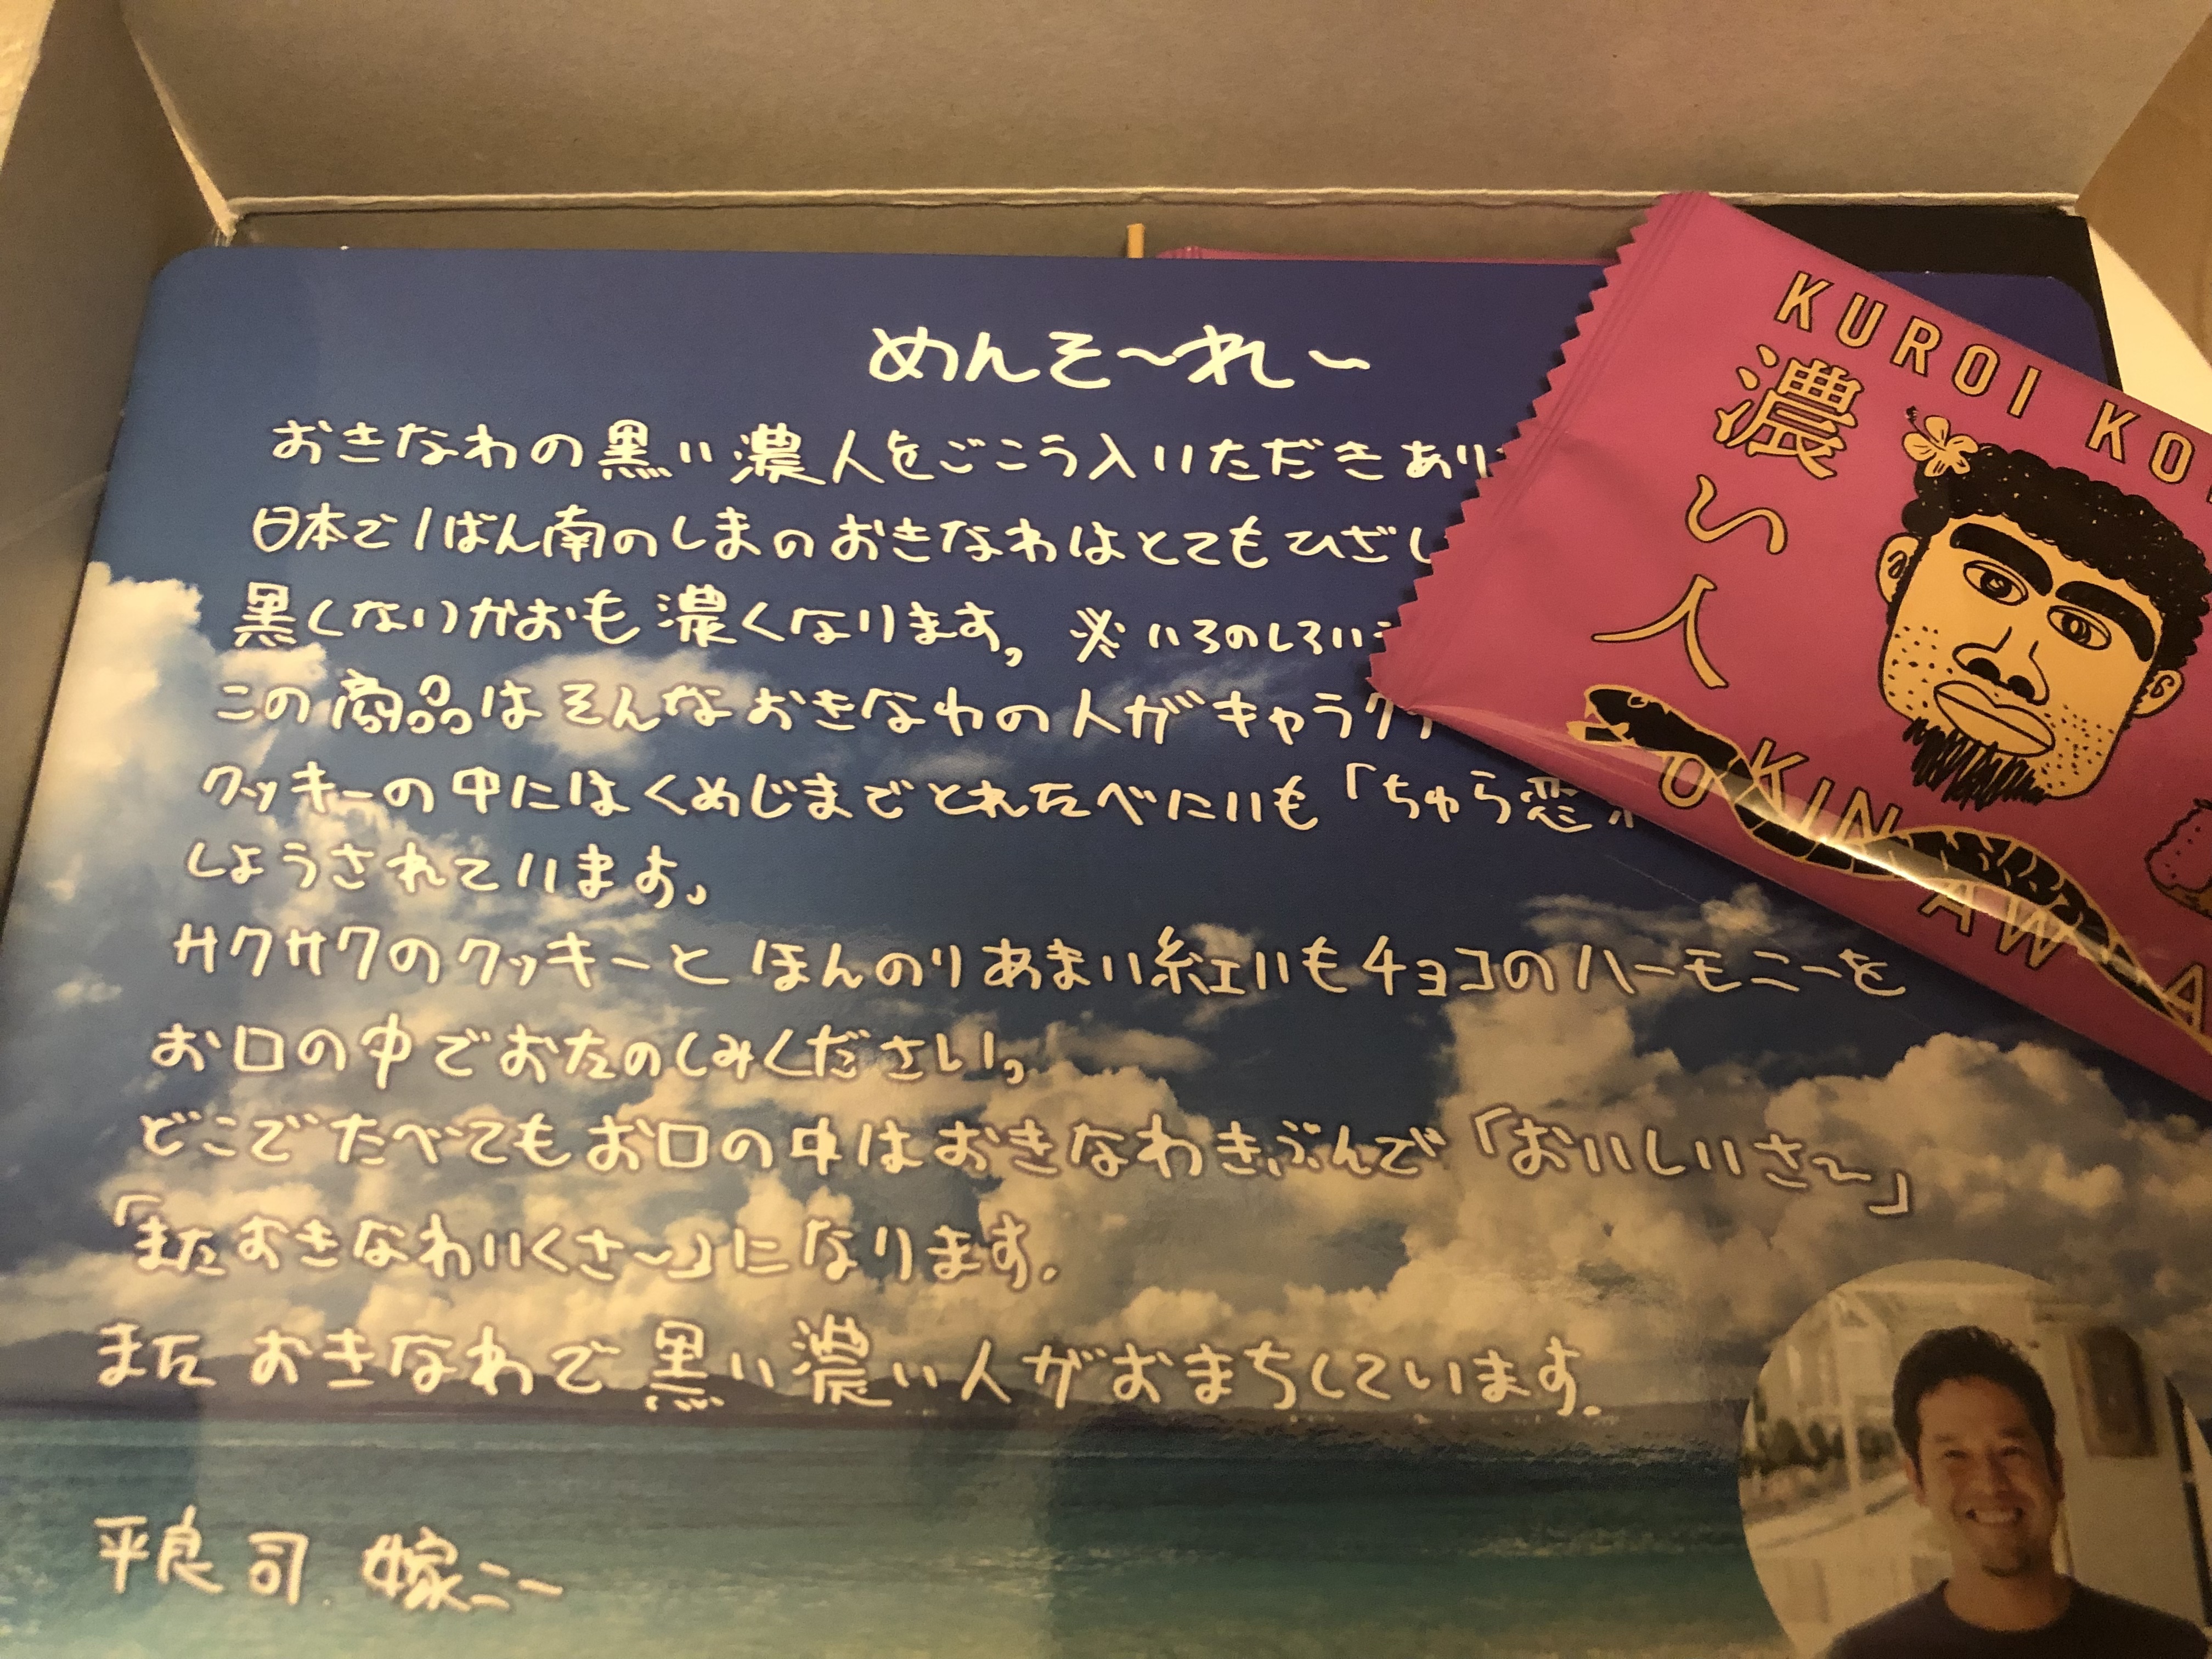 めんそ～れ～
おきなわの黒い濃人をごこう入いただきあり
日本で1ばん南のしまのおきなわはとてもひざし
黒くなりかおも濃くなります。※いろのしろい
この商品はそんなおきなわの人がキャラク
クッキーの中にはくめじまでとれたべにいも「ちゅら恋
しようされています。
サクサクのクッキーとほんのりあまい紅いもチョコのハーモニーを
お口の中でおたのしみください。
どこでたべてもお口の中はおきなわきぶんで「おいしいさ～」
「またおきなわいくさ～」になります.
またおきなわで黒い濃い人がおまちしています.
平良司.嫁ニー
KUROI KO
濃い人
OKINAWA